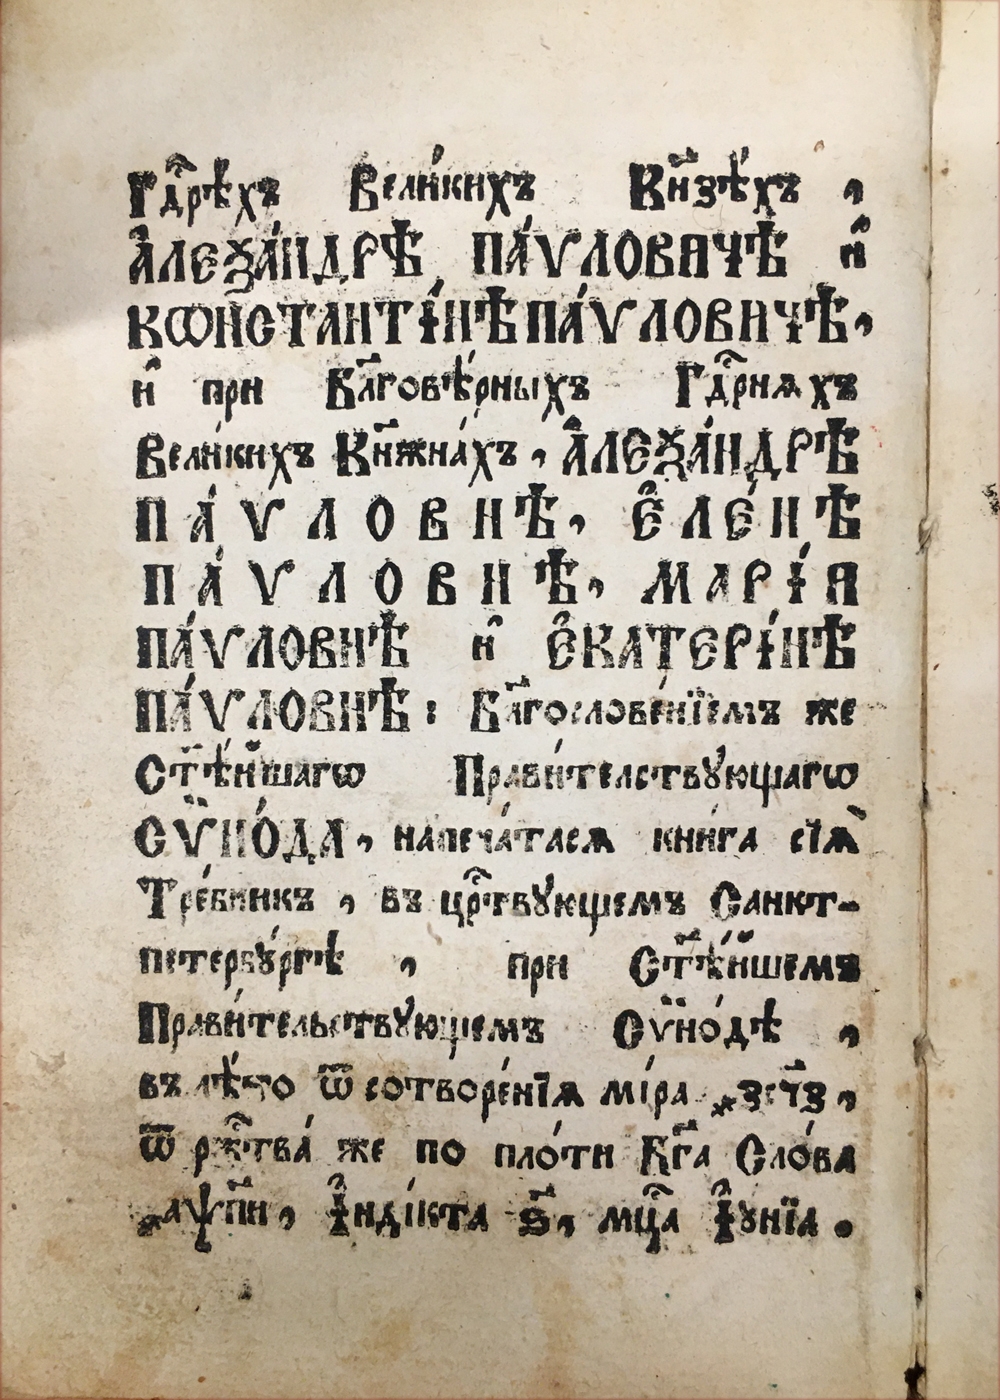 Гдⷭ҇рѣ́хъ Вели́кихъ Кн҃зѣ́хъ ,
А҆ЛЕѮА́НДРѢ ПА́ѴЛОВИЧѢ и҆
КѠНСТАНТІ́НѢ ПА́ѴЛОВИЧѢ,
и҆ при Бл҃говѣ́рныхъ Гдⷭ҇рнѧхъ
Вели́кихъ Кн҃жна́хъ , А҆ЛЕѮА́НДРѢ
ПА́ѴЛОВНѢ, Е҆ЛЕ́НѢ
ПА́ѴЛОВНѢ, МАРІ́И
ПА́ѴЛОВНѢ и҆ Е҆КАТЕРІ́НѢ
ПА́ѴЛОВНѢ : Бл҃гослове́нїемъ же
Ст҃ѣ́йшагѡ Прави́телствꙋющагѡ
СѴ̈НО́ДА, напеча́тасѧ кни́га сїѧ̀
Тре́бникъ , въ црⷭ҇твꙋющемъ Санкт-
петербꙋ́ргѣ , при Ст҃ѣ́йшемъ
Прави́тельствꙋющемъ Сѵ̈но́дѣ ,
въ лѣ́то ѿ сотворе́нїѧ мі́ра ҂зс҃чз ,
ѿ ржⷭ҇тва́ же по пло́ти Бг҃а Сло́ва
҂аѱп҃и , І҆нді́кта ѕ҃ , мцⷭ҇а І҆ꙋнїа .